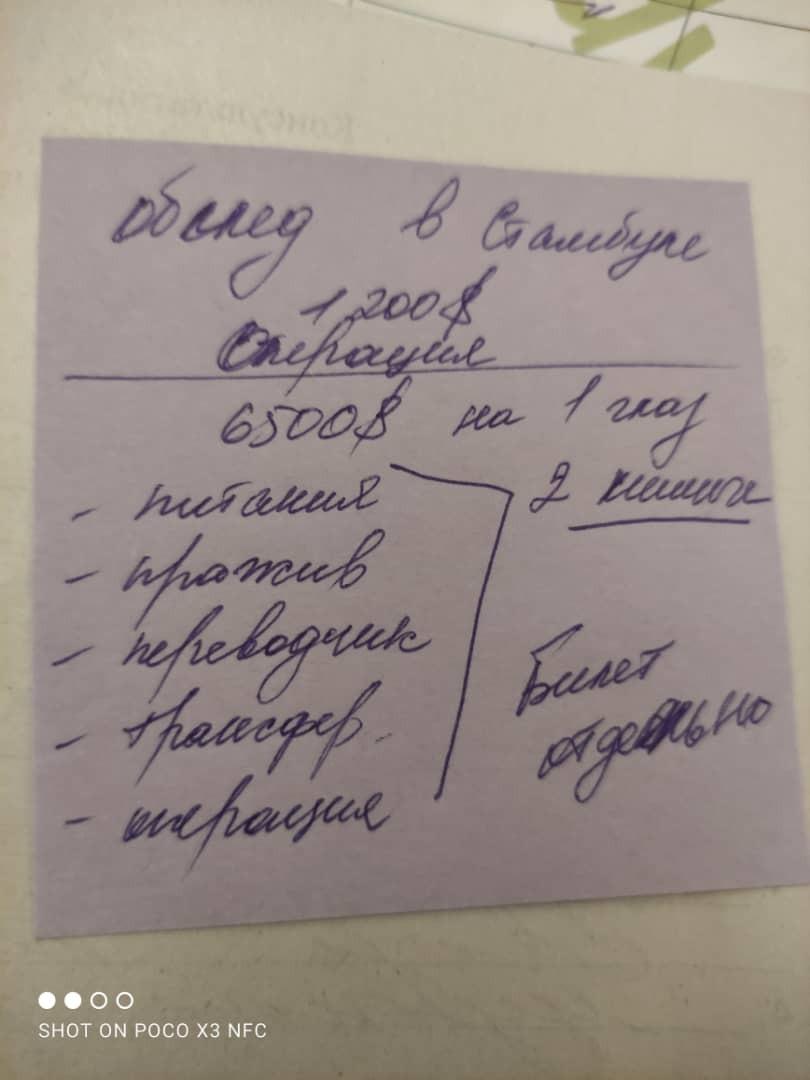 Консультация
обслед в Стамбуле
1 200$
Операция
6500$ на 1 глаз
2
- питания
- прожив
- переводчик
- трансфер
- операция
Билет
отдельно
SHOT ON POCO X3 NFC